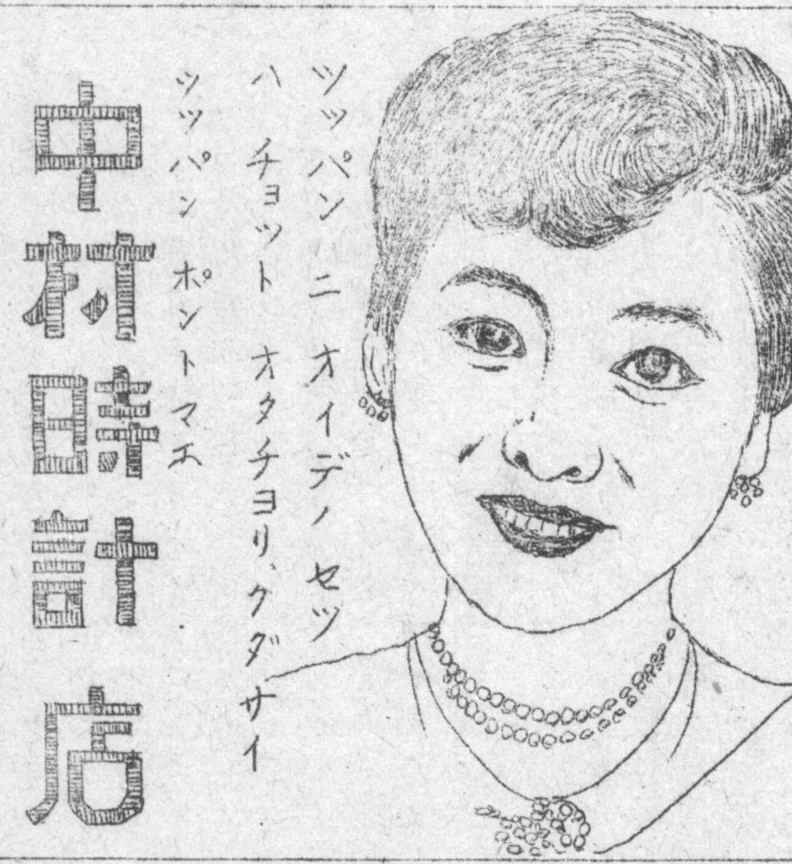 ツッパン ニ オイデノ セツ
ハ チョット オタチヨリ、クダサイ
ツッパン ポントマエ
中村時計店